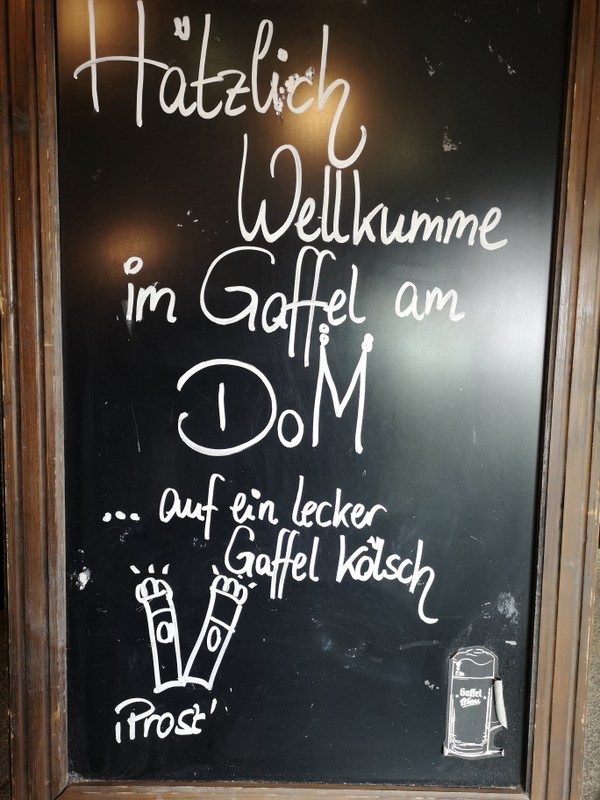 Hätzlich
Wellkumme
im Gaffel am
DoM
... auf ein lecker
Gaffel Kölsch
¡Prost'
Gaffel